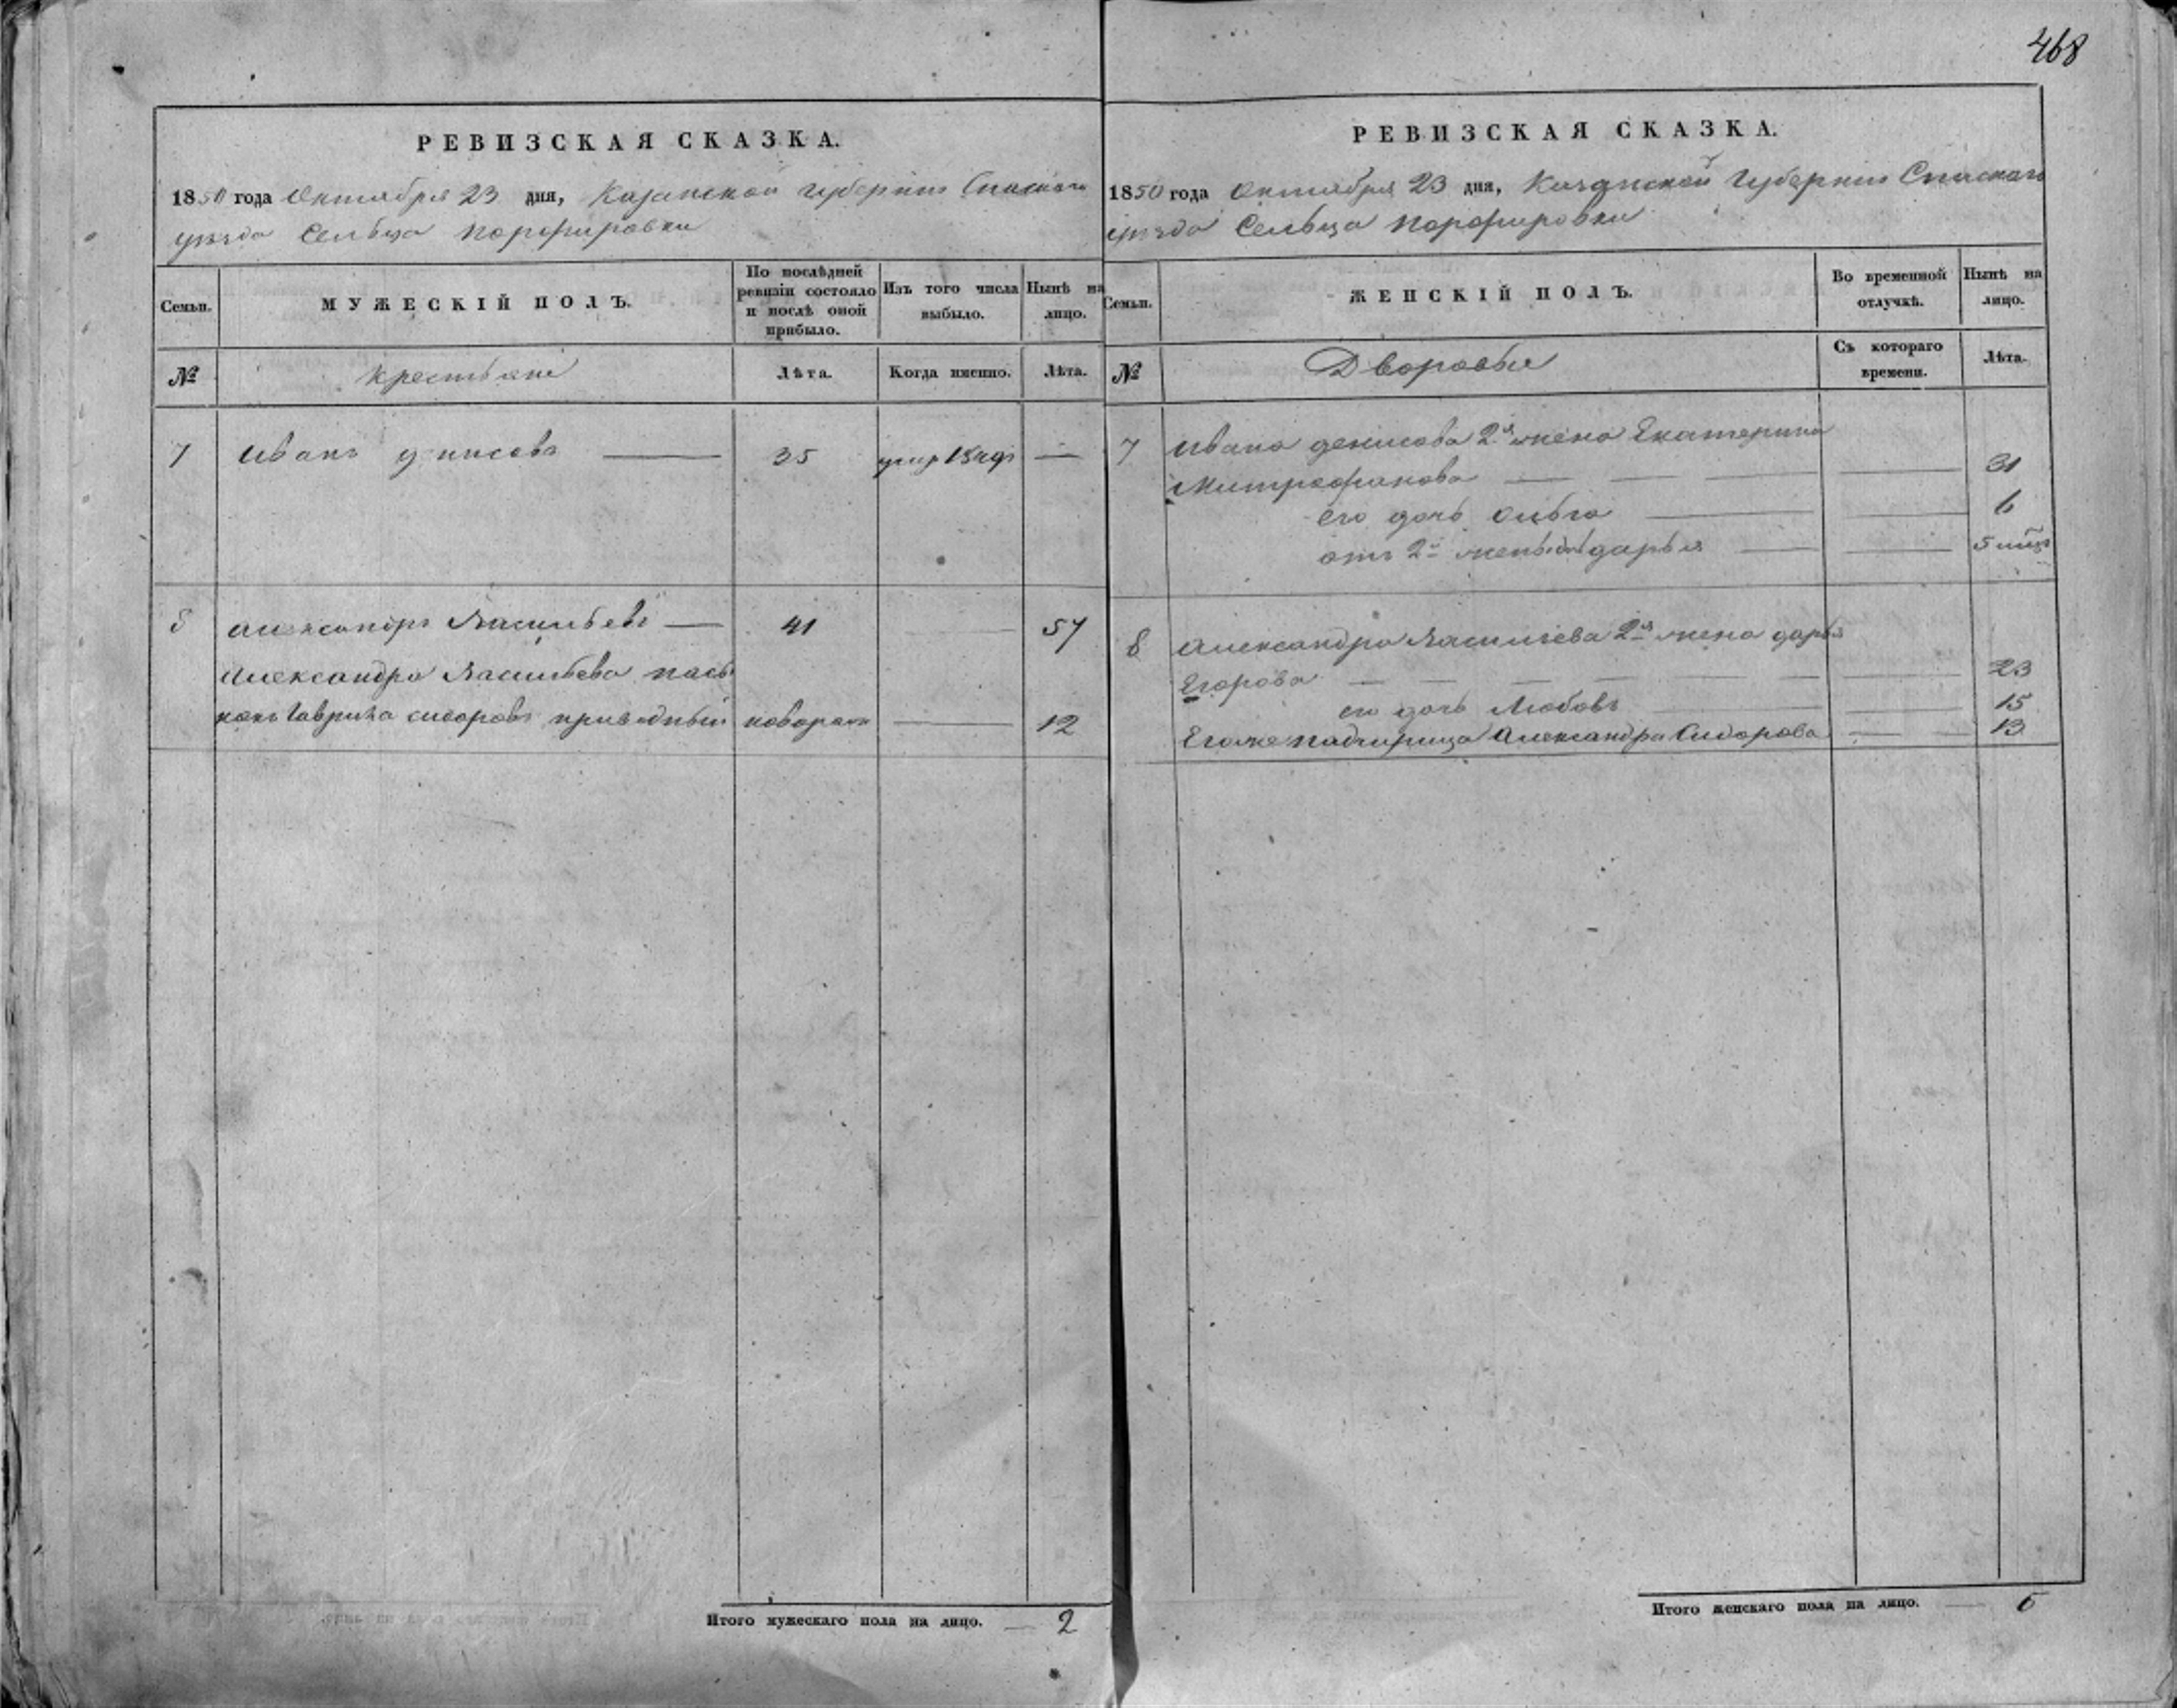 468
РЕВИЗСКАЯ СКАЗКА.
1850 года Октября 23 дня, Казанской губернии Спаскаго
уезда Сельца Порфировки
Семьи.
МУЖЕСКІЙ ПОЛЪ.
По послѣдней ревизіи состояло и послѣ оной прибыло.
Изъ того числа выбыло.
Нынѣ на лицо.
№
Крестьяне
Лѣта.
Когда именно.
Лѣта.
7 Иванъ Денисовъ 35 умер 1849 —
8 Александръ Васильевъ 41 57
Александра Васильева пасы
нокъ Гаврила Сидоровъ приводный 12
Итого мужескаго пола на лицо. 2
РЕВИЗСКАЯ СКАЗКА.
1850 года Октября 23 дня, Казанской Губернии Спаскаго
уезда Сельца Порфировки
Семьи.
ЖЕНСКІЙ ПОЛЪ.
Во временной отлучкѣ.
Нынѣ на лицо.
№
Дворовые
Съ котораго времени.
Лѣта.
7 Ивана Денисова 2я жена Екатерина
Митрофанова 31
его дочь Ольга 6
отъ 2й жены Дарья 5
8 Александра Васильева 2я жена Дарья
Егорова 23
его дочь Любовь 15
Егоже падчерица Александра Сидорова 13
Итого женскаго пола на лицо. 6